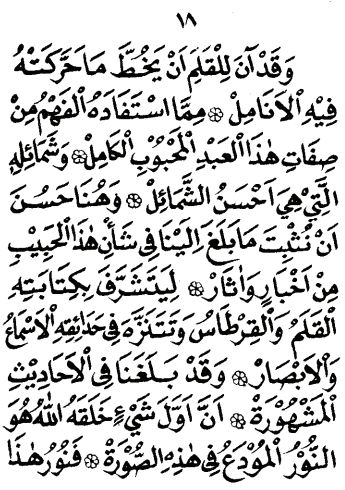 ١٨
وَقَدْ آنَ لِلْقَلَمِ اَنْ يَخُطَّ مَا حَرَّكَتْهُ
فِيْهِ الْاَنَامِلْ ۞ مِمَّا اسْتَفَادَهُ الْفَهْمُ مِنْ
صِفَاتِ هٰذَا الْعَبْدِ الْمَحْبُوْبِ الْكَامِلْ ۞ وَشَمَائِلِهِ
الَّتِيْ هِيَ اَحْسَنُ الشَّمَائِلْ ۞ وَهُنَا حَسُنَ
اَنْ نُثْبِتَ مَا بَلَغَ اِلَيْنَا فِيْ شَأْنِ هٰذَا الْحَبِيْبِ
مِنْ اَخْبَارٍ وَاٰثَارْ ۞ لِيَتَشَرَّفَ بِكِتَابَتِهِ
الْقَلَمُ وَالْقِرْطَاسُ وَتَتَنَزَّهَ فِيْ حَدَائِقِهِ الْاَسْمَاعُ
وَالْاَبْصَارْ ۞ وَقَدْ بَلَغَنَا فِي الْاَحَادِيْثِ
الْمَشْهُوْرَةْ ۞ اَنَّ اَوَّلَ شَيْءٍ خَلَقَهُ اللهُ هُوَ
النُّوْرُ الْمُوْدَعُ فِيْ هٰذِهِ الصُّوْرَةْ ۞ فَنُوْرُ هٰذَا